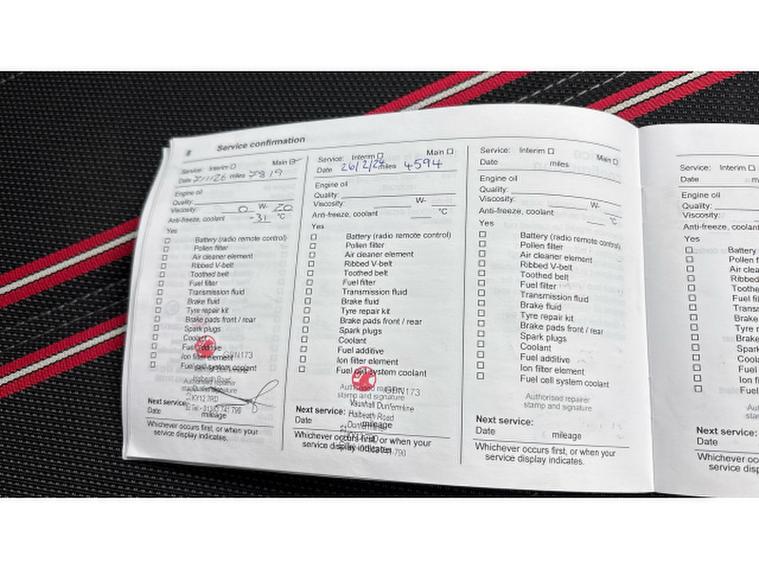 8 Service confirmation
Service: Interim ☐ Main ☑
Date miles 7819
Engine oil
Quality:
Viscosity: 0 W- 20
Anti-freeze, coolant -31 °C
Yes
☐ Battery (radio remote control)
☐ Pollen filter
☐ Air cleaner element
☐ Ribbed V-belt
☐ Toothed belt
☐ Fuel filter
☐ Transmission fluid
☐ Brake fluid
☐ Tyre repair kit
☐ Brake pads front / rear
☐ Spark plugs
☐ Coolant
☐ Fuel additive
☐ Ion filter element
☐ Fuel cell system coolant
GBN173
Authorised repairer
stamp and signature
Halbeath Road
KY12 7RD
Next service:
Date mileage
Whichever occurs first, or when your
service display indicates.
Service: Interim ☐ Main ☐
Date 26/2/24 miles 4594
Engine oil
Quality:
Viscosity: W-
Anti-freeze, coolant °C
Yes
☐ Battery (radio remote control)
☐ Pollen filter
☐ Air cleaner element
☐ Ribbed V-belt
☐ Toothed belt
☐ Fuel filter
☐ Transmission fluid
☐ Brake fluid
☐ Tyre repair kit
☐ Brake pads front / rear
☐ Spark plugs
☐ Coolant
☐ Fuel additive
☐ Ion filter element
☐ Fuel cell system coolant
GBN173
Authorised repairer
stamp and signature
Vauxhall Dunfermline
Halbeath Road
Dunfermline
Next service:
Date mileage
Whichever occurs first, or when your
service display indicates.
Service: Interim ☐ Main ☐
Date miles
Engine oil
Quality:
Viscosity: W-
Anti-freeze, coolant °C
Yes
☐ Battery (radio remote control)
☐ Pollen filter
☐ Air cleaner element
☐ Ribbed V-belt
☐ Toothed belt
☐ Fuel filter
☐ Transmission fluid
☐ Brake fluid
☐ Tyre repair kit
☐ Brake pads front / rear
☐ Spark plugs
☐ Coolant
☐ Fuel additive
☐ Ion filter element
☐ Fuel cell system coolant
Authorised repairer
stamp and signature
Next service:
Date mileage
Whichever occurs first, or when your
service display indicates.
Service: Interim ☐
Date
Engine oil
Quality:
Viscosity:
Anti-freeze, coolant
Yes
☐ Battery
☐ Pollen f
☐ Air clea
☐ Ribbed
☐ Toothe
☐ Fuel fi
☐ Transm
☐ Brake
☐ Tyre r
☐ Brake
☐ Spark
☐ Coola
☐ Fuel
☐ Ion fi
☐ Fuel
Auth
stam
Next service:
Date
Whichever occ
service disp